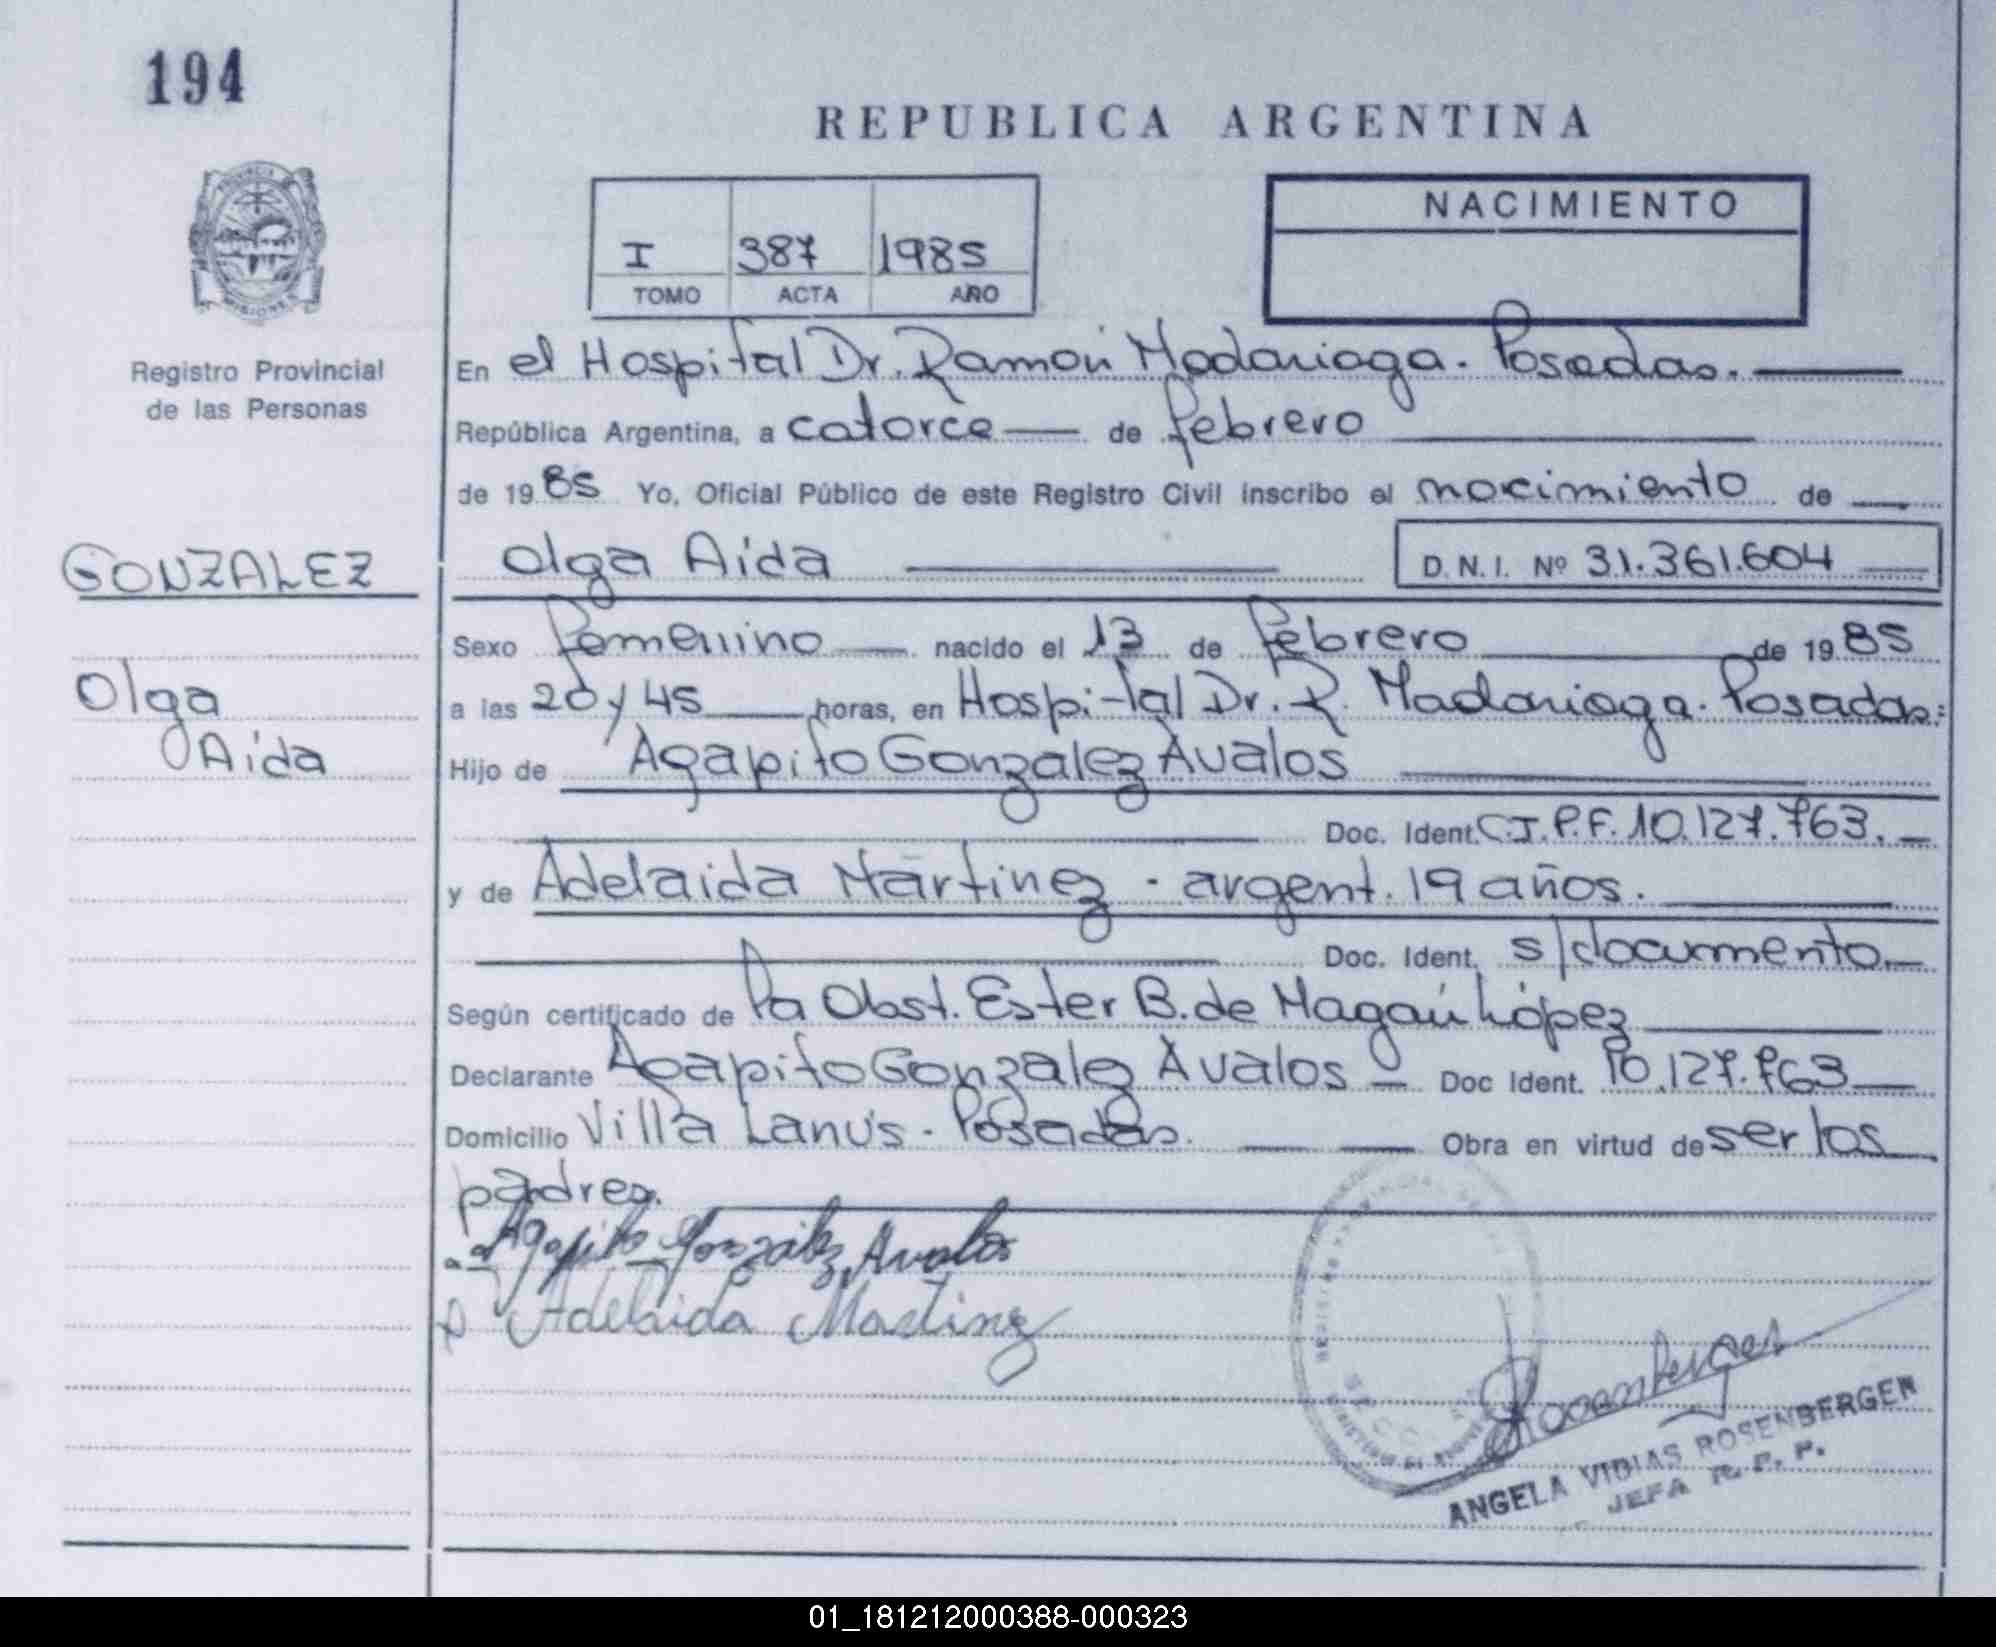 194
REPUBLICA ARGENTINA
PROVINCIA
MISIONES
I 387 1985
TOMO ACTA AÑO
NACIMIENTO
Registro Provincial
de las Personas
En el Hospital Dr. Ramón Madariaga. Posadas.
República Argentina, a catorce de febrero
de 1985 Yo, Oficial Público de este Registro Civil inscribo el nacimiento de
GONZALEZ
Olga Aida D.N.I. Nº 31.361.604
Sexo femenino nacido el 13 de febrero de 1985
Olga
a las 20 y 45 horas, en Hospital Dr. R. Madariaga. Posadas.
Aida
Hijo de Agapito Gonzalez Avalos
Doc. Ident. C.I.P.F. 10.127.763.
y de Adelaida Martinez - argent. 19 años.
Doc. Ident. s/documento.
Según certificado de Pa Obst. Ester B. de López
Declarante Agapito Gonzalez Avalos Doc Ident. 10.127.763
Domicilio Villa Lanús - Posadas. Obra en virtud de ser los
padres.
Agapito González Avalos
Adelaida Martinez
Rosenberger
ANGELA ROSENBERGER
JEFA R. P. P.
01_181212000388-000323